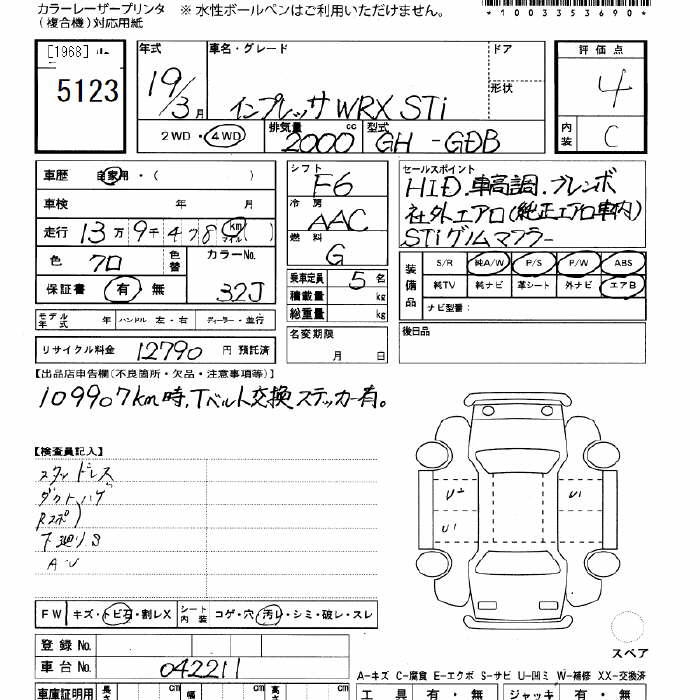 カラーレーザープリンタ ※ 水性ボールペンはご利用いただけません。
(複合機)対応用紙
*1003353690*
[1968]
5123
年式 車名・グレード ドア 評価点
19/3月 インプレッサWRX STi 形状 4
2WD・4WD 排気量 2000 cc 型式 GH-GDB 内装 C
車歴 自家用・( )
車検 年 月
走行 13万9千478 km マイル( )
色 クロ 色替 カラーNo.
保証書 有・無 32J
モデル年式 年 ハンドル 左・右 ディーラー・並行
リサイクル料金 12790 円 預託済
シフト F6
冷房 AAC
燃料 G
乗車定員 5名
積載量 kg
総重量 kg
名変期限
月 日
セールスポイント
HID.車高調.ブレンボ
社外エアロ(純正エアロ車内)
STiゲノムマフラー
装備品 S/R 純A/W P/S P/W ABS
純TV 純ナビ 革シート 外ナビ エアB
ナビ型番:
後日品
【出品店申告欄(不良箇所・欠品・注意事項等)】
109907km時.Tベルト交換ステッカー有。
【検査員記入】
スタッドレス
ダクトハゲ
下廻りS
U2 U1
U1
FW キズ・トビ石・割レX シート内装 コゲ・穴・汚レ・シミ・破レ・スレ
登録No.
車台No. 042211
車庫証明用 長さ cm 幅 cm 高さ cm
スペア
A-キズ C-腐食 E-エクボ S-サビ U-凹ミ W-補修 XX-交換済
工具 有・無 ジャッキ 有・無